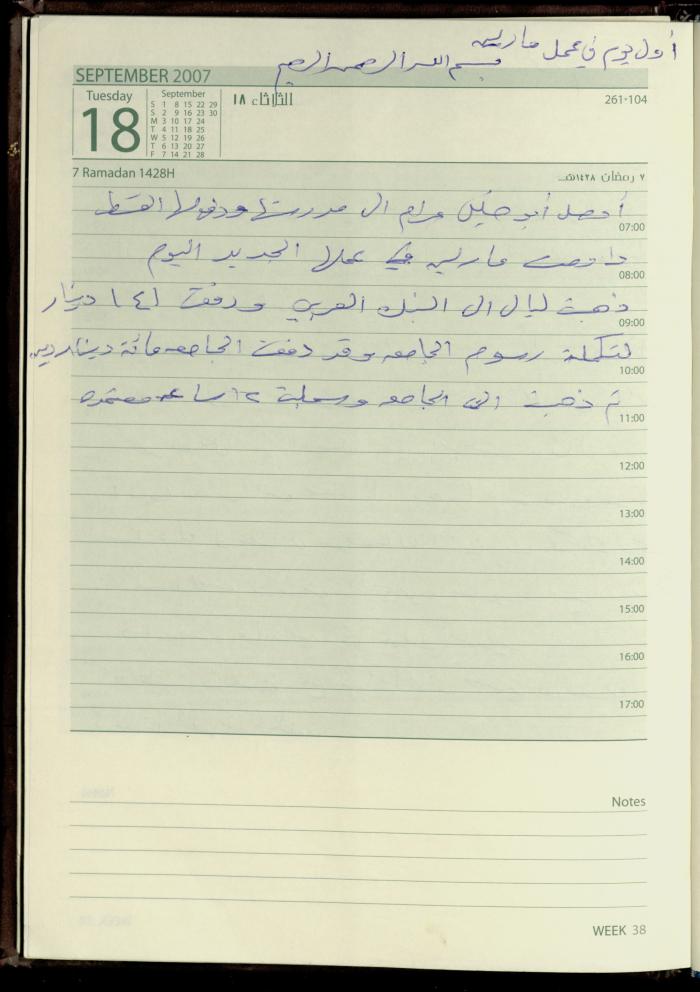 أول يوم في عمل ماريس
بسم الله الرحمن الرحيم
SEPTEMBER 2007
Tuesday
18
September
S 1 8 15 22 29
S 2 9 16 23 30
M 3 10 17 24
T 4 11 18 25
W 5 12 19 26
T 6 13 20 27
F 7 14 21 28
الثلاثاء ١٨
261-104
7 Ramadan 1428H
٧ رمضان ١٤٢٨هـ
أبو خليل مرام الى مدرستها
07:00
داومت ماريس في عملها الجديد اليوم
08:00
ذهبت ليال الى البنك العربي ودفعت ١٤١ دينار
09:00
لتكملة رسوم الجامعه وقد دفعت الجامعه مائة دينار
10:00
ثم ذهبت الى الجامعه وسجلت ١٢ ساعه معتمده
11:00
12:00
13:00
14:00
15:00
16:00
17:00
Notes
WEEK 38